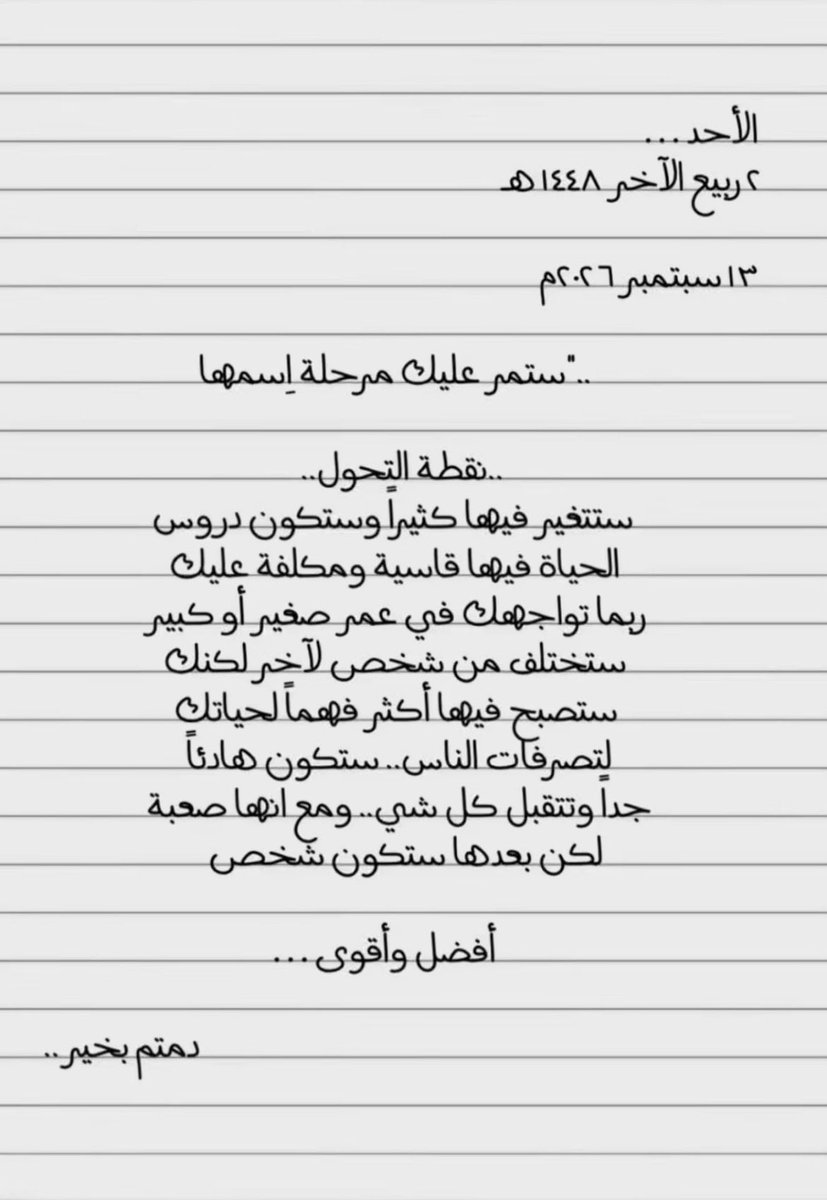 الأحد...
٢ ربيع الآخر ١٤٤٨هـ
١٣ سبتمبر ٢٠٢٦م
.."ستمر عليك مرحلة اِسمها
..نقطة التحول..
ستتغير فيها كثيراً وستكون دروس
الحياة فيها قاسية ومكلفة عليك
ربما تواجهك في عمر صغير أو كبير
ستختلف من شخص لآخر لكنك
ستصبح فيها أكثر فهماً لحياتك
لتصرفات الناس.. ستكون هادئاً
جداً وتتقبل كل شي.. ومع انها صعبة
لكن بعدها ستكون شخص
أفضل وأقوى...
دمتم بخير..